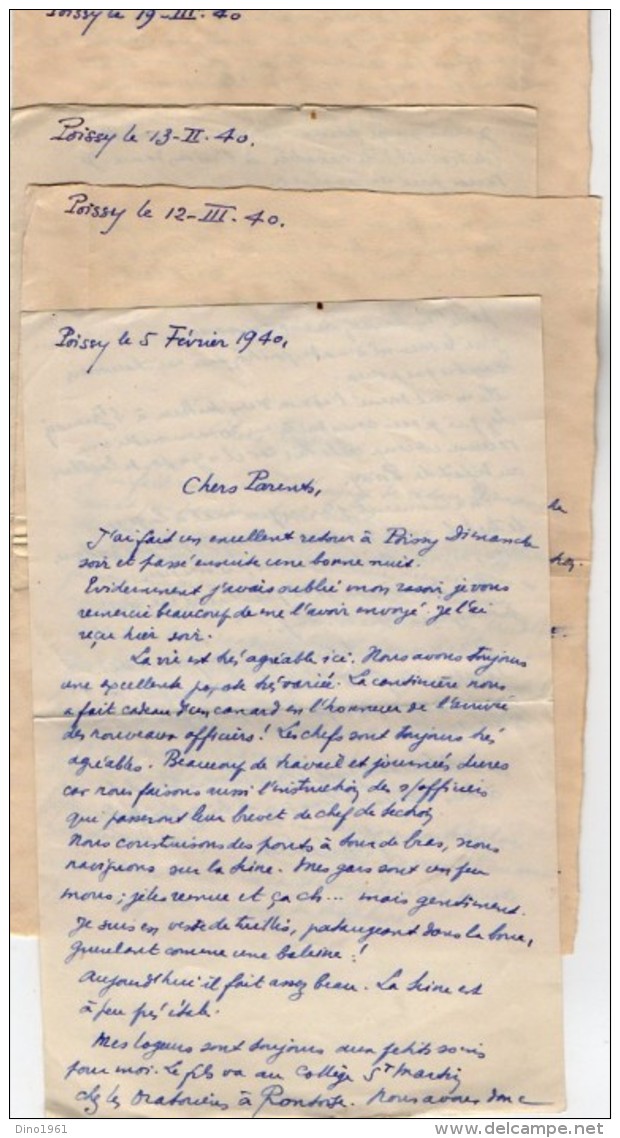 Poissy le 19-III-40
Poissy le 13-II-40.
Poissy le 12-III-40.
Poissy le 5 Février 1940.
Chers Parents,
J'ai fait un excellent retour à Poissy Dimanche
soir et passé ensuite une bonne nuit.
Evidemment j'avais oublié mon rasoir je vous
remercie beaucoup de me l'avoir envoyé. Je l'ai
reçu hier soir.
La vie est très agréable ici. Nous avons toujours
une excellente popote très variée. La cantinière nous
a fait cadeau d'un canard en l'honneur de l'arrivée
des nouveaux officiers! Les chefs sont toujours très
agréables. Beaucoup de travail et journées dures
car nous faisons aussi l'instruction des s/officiers
qui passeront leur brevet de chef de section
Nous construisons des ponts à tour de bras, nous
naviguons sur la Seine. Mes gars sont un peu
mous; je les remue et ça ch... mais gentiment.
Je suis en veste de treillis, pataugeant dans la boue,
gueulant comme une baleine!
Aujourd'hui il fait assez beau. La Seine est
à peu près étale.
Mes logeurs sont toujours aux petits soins
pour moi. Le fils va au Collège St Martin
chez les Oratoriens à Pontoise. Nous avons donc
Dino1961
delcampe.net